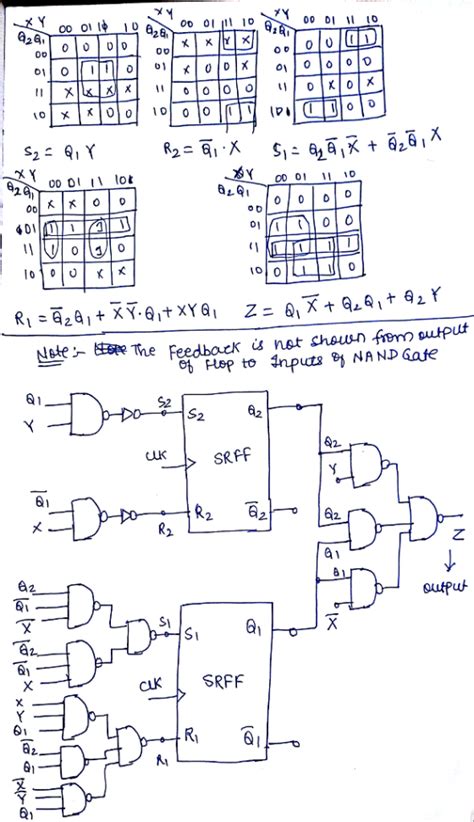 XY 00 01 11 10
Q2Q1
00 0 0 0 0
01 0 1 1 0
11 X X X X
10 X X 0 0
XY 00 01 11 10
Q2Q1
00 X X X X
01 X 0 0 X
11 0 0 0 0
10 0 0 1 1
XY 00 01 11 10
Q2Q1
00 0 0 1 1
01 0 0 0 0
11 0 X 0 X
10 1 1 0 0
S2 = Q1 Y
R2 = Q̅1 · X
S1 = Q2Q̅1X̅ + Q̅2Q̅1X
XY 00 01 11 10
Q2Q1
00 X X 0 0
01 1 1 1 1
11 1 0 1 0
10 0 0 X X
XY 00 01 11 10
Q2Q1
00 0 0 0 0
01 1 1 0 0
11 1 1 1 1
10 0 1 1 0
R1 = Q̅2Q1 + X̅Y̅·Q1 + XYQ1
Z = Q1X̅ + Q2Q1 + Q2Y
Note:- The Feedback is not shown from output
of Flop to Inputs of NAND Gate
Q1
Y
S2
S2
Q2
CLK
SRFF
Q̅1
X
R2
R2
Q̅2
Q2
Y
Q2
Q1
Q1
X̅
Z
output
Q2
Q̅1
X̅
Q̅2
Q̅1
X
S1
S1
Q1
CLK
SRFF
X
Y
Q1
Q̅2
Q1
X̅
Y̅
Q1
R1
R1
Q̅1